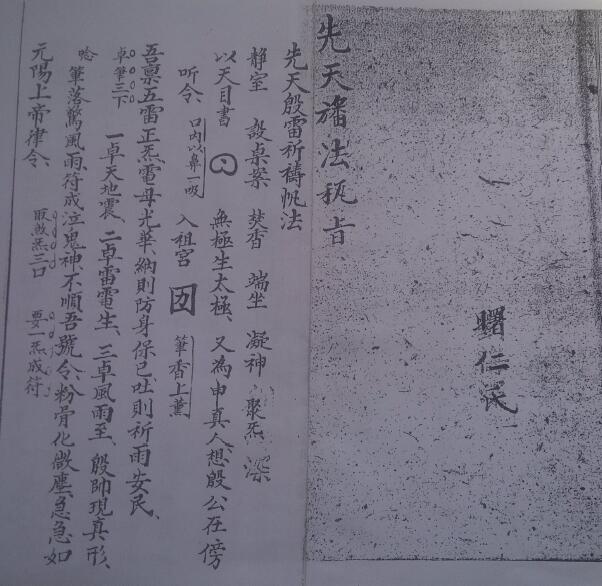 先天旛法秘旨
曙仁氏
先天殷雷祈禱帆法
靜室 設桌案 焚香 端坐 凝神 聚炁 深
以天目書 無極生太極、又為申真人、想殷公在傍
听令、口內以鼻一吸 入祖宮 筆香上薰
吾禀五雷正炁、電母光華、納則防身保己、吐則祈雨安民、
卓筆三下 一卓天地震、二卓雷電生、三卓風雨至、殷帥現真形、
唸 筆落驚風雨、符成泣鬼神、不順吾號令、粉骨化微塵、急急如
元陽上帝律令、 取煞炁三口 要一炁成符